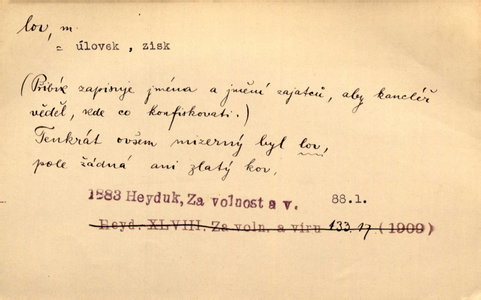 lov, m.
= úlovek, zisk
(Přibík zapisuje jména a jmění zajatců, aby kancléř
věděl, kde co konfiskovati.)
Tenkrát ovšem mizerný byl lov,
pole žádná ani zlatý kov,
1883 Heyduk, Za volnost a v. 88.1.
Heyd. XLVIII. Za voln. a víru 133.17 (1909)